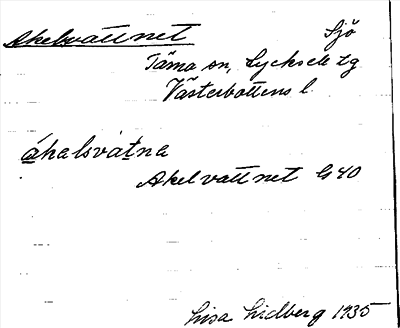 Akelvattnet Sjö
Täma sn, Lycksele tg
Västerbottens l.
áhalsvátna
Akelvattnet G40
Lisa Lidberg 1935